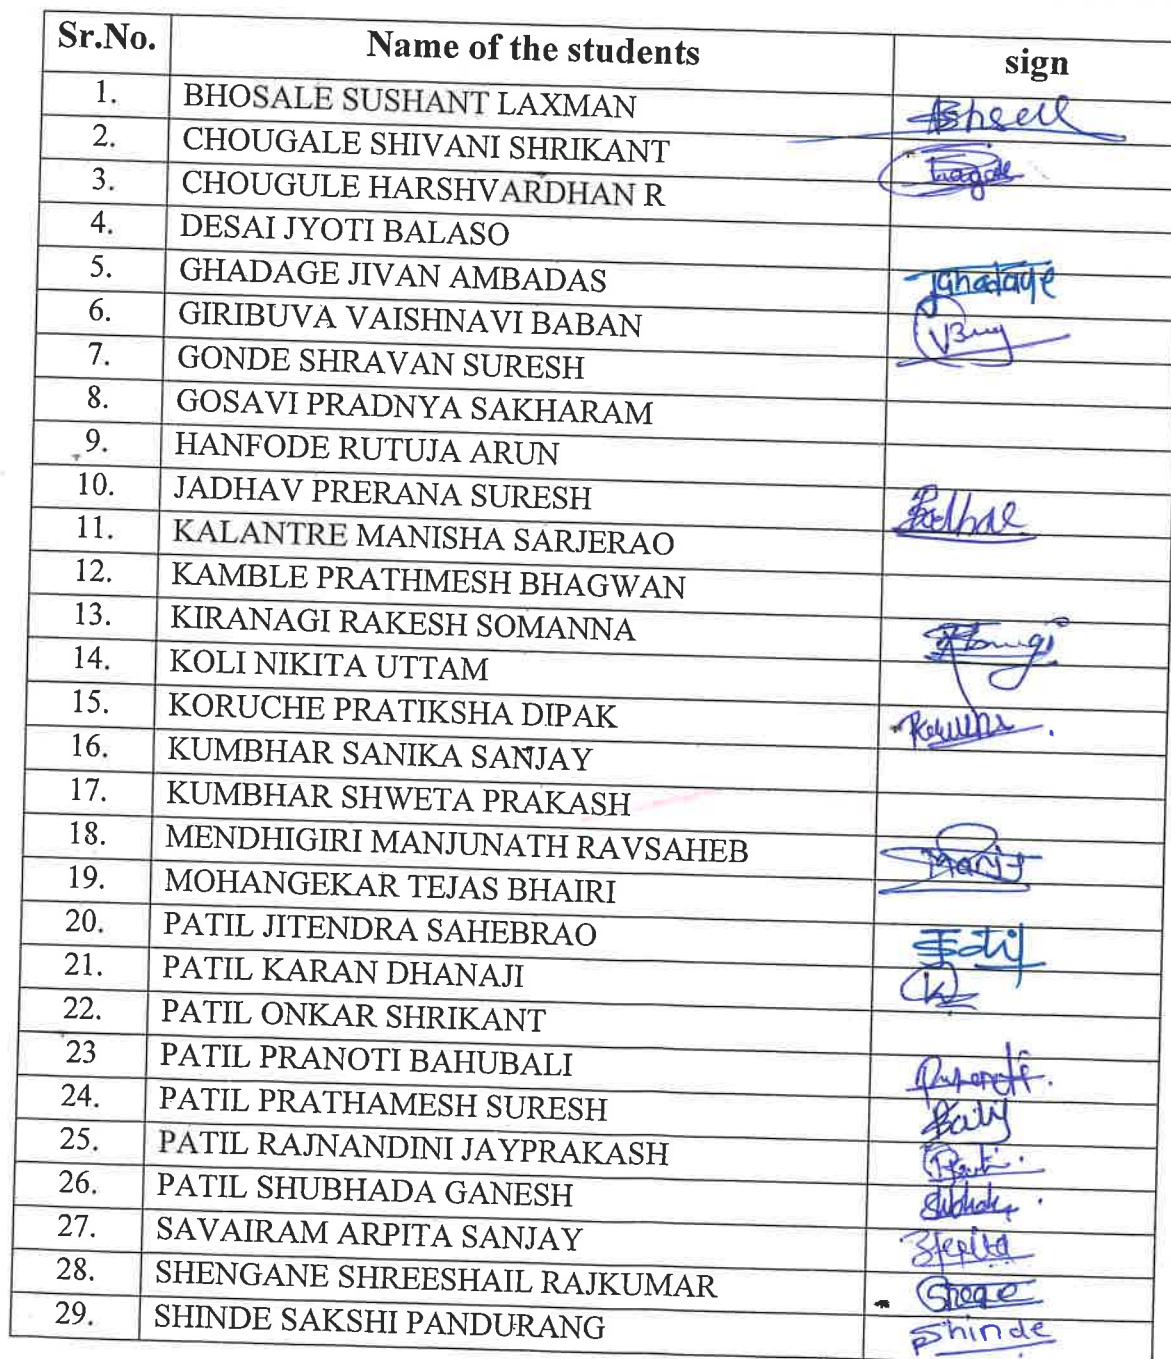 Sr.No. Name of the students sign
1. BHOSALE SUSHANT LAXMAN
2. CHOUGALE SHIVANI SHRIKANT
3. CHOUGULE HARSHVARDHAN R
4. DESAI JYOTI BALASO
5. GHADAGE JIVAN AMBADAS Jghadage
6. GIRIBUVA VAISHNAVI BABAN
7. GONDE SHRAVAN SURESH
8. GOSAVI PRADNYA SAKHARAM
9. HANFODE RUTUJA ARUN
10. JADHAV PRERANA SURESH
11. KALANTRE MANISHA SARJERAO
12. KAMBLE PRATHMESH BHAGWAN
13. KIRANAGI RAKESH SOMANNA
14. KOLI NIKITA UTTAM
15. KORUCHE PRATIKSHA DIPAK
16. KUMBHAR SANIKA SANJAY
17. KUMBHAR SHWETA PRAKASH
18. MENDHIGIRI MANJUNATH RAVSAHEB
19. MOHANGEKAR TEJAS BHAIRI
20. PATIL JITENDRA SAHEBRAO
21. PATIL KARAN DHANAJI
22. PATIL ONKAR SHRIKANT
23 PATIL PRANOTI BAHUBALI
24. PATIL PRATHAMESH SURESH
25. PATIL RAJNANDINI JAYPRAKASH
26. PATIL SHUBHADA GANESH
27. SAVAIRAM ARPITA SANJAY
28. SHENGANE SHREESHAIL RAJKUMAR
29. SHINDE SAKSHI PANDURANG Shinde